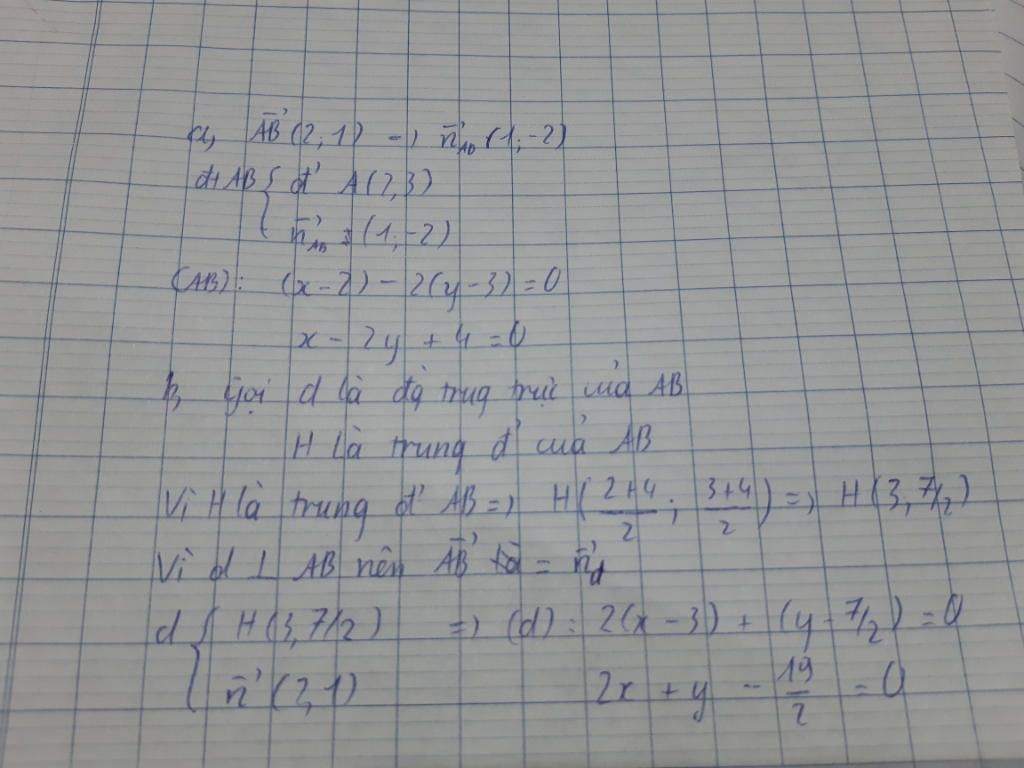 a, AB (2; 1) => n AB (1; -2)
đt AB { đ' A (2, 3)
n AB = (1; -2)
(AB): (x - 2) - 2(y - 3) = 0
x - 2y + 4 = 0
b, Gọi d là đg trug trực của AB
H là trung đ' của AB
Vì H là trung đ' AB => H( (2+4)/2 ; (3+4)/2 ) => H (3, 7/2)
Vì d ⊥ AB nên AB = n d
d { H (3, 7/2) => (d): 2(x - 3) + (y - 7/2) = 0
n (2, 1) 2x + y - 19/2 = 0